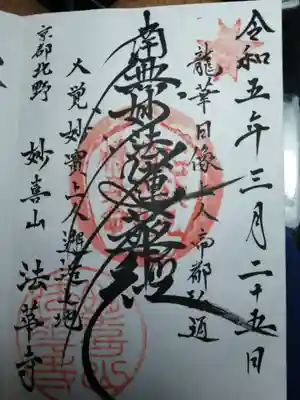 令和五年三月二十五日
龍華日像上人帝都弘通
南無妙法蓮華経
大覚妙實上人遊造之地
京都北野 妙喜山 法華寺